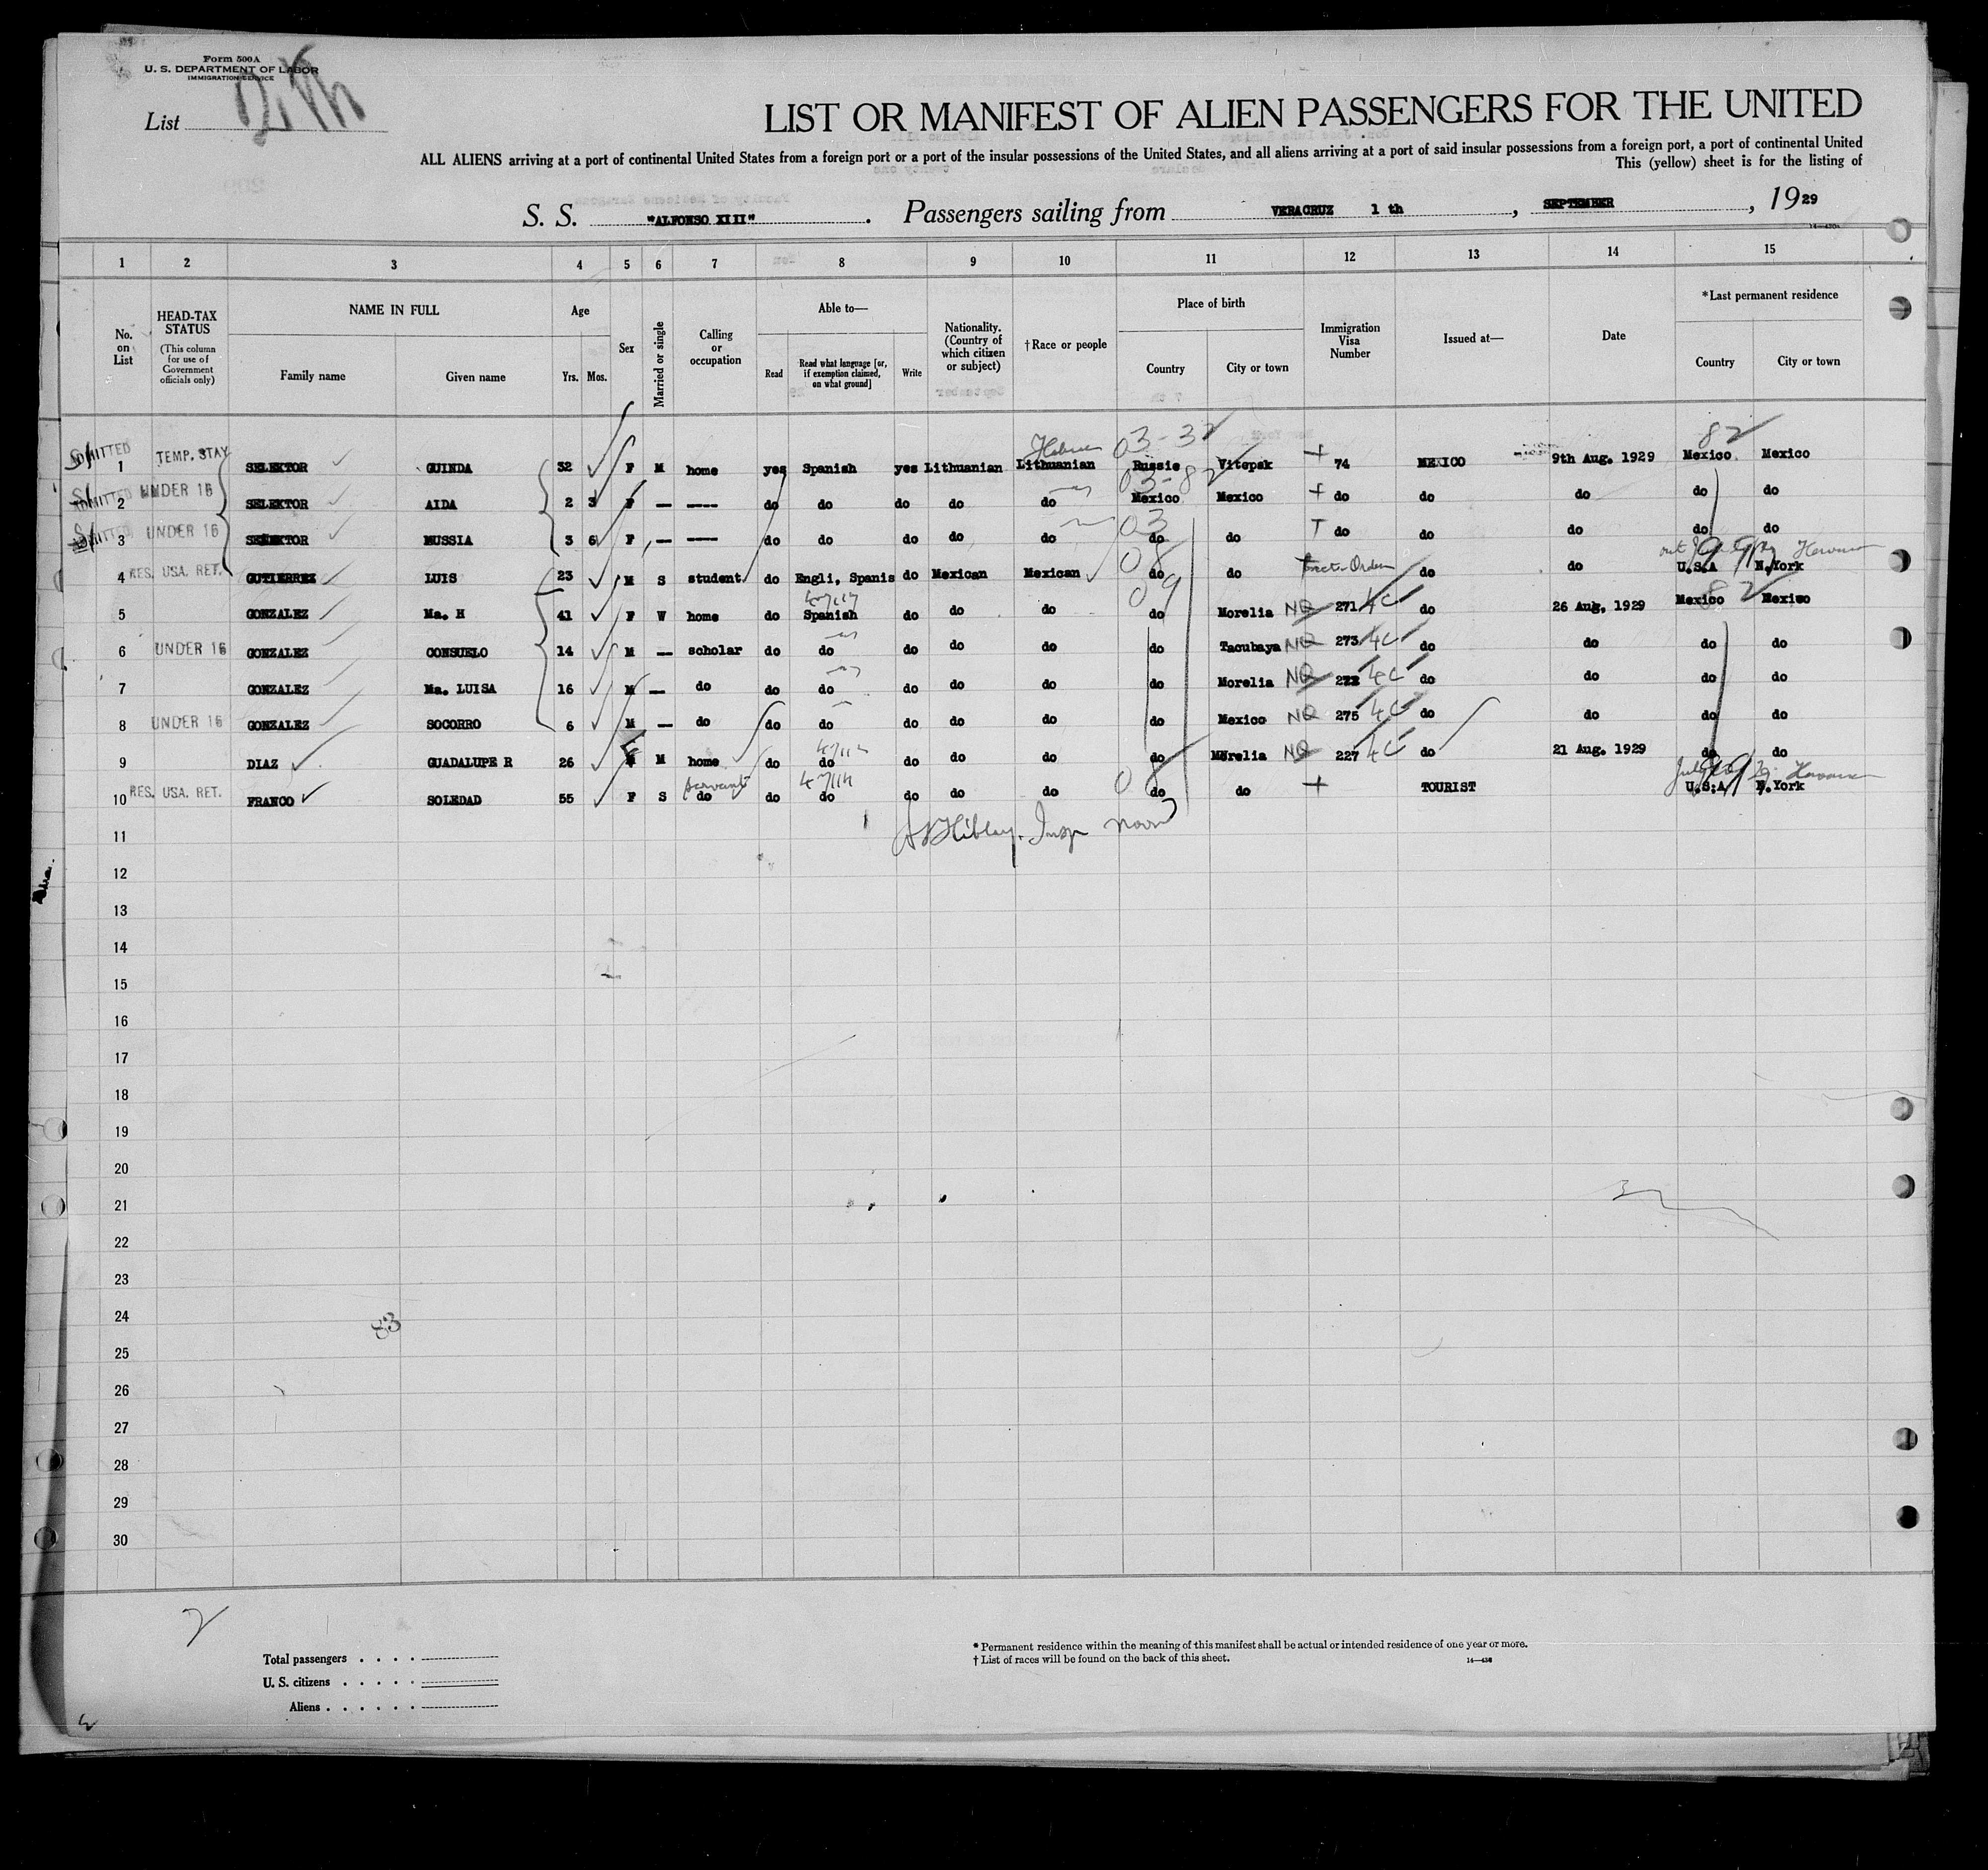 Form 500A
U. S. DEPARTMENT OF LABOR
IMMIGRATION SERVICE
List
LIST OR MANIFEST OF ALIEN PASSENGERS FOR THE UNITED
ALL ALIENS arriving at a port of continental United States from a foreign port or a port of the insular possessions of the United States, and all aliens arriving at a port of said insular possessions from a foreign port, a port of continental United
This (yellow) sheet is for the listing of
S. S. "ALFONSO XIII". Passengers sailing from VERACRUZ 1 th, SEPTEMBER, 1929
1 2 3 4 5 6 7 8 9 10 11 12 13 14 15
No. on List
HEAD-TAX STATUS
(This column for use of Government officials only)
NAME IN FULL
Family name Given name
Age
Yrs. Mos.
Sex
Married or single
Calling or occupation
Able to—
Read
Read what language [or, if exemption claimed, on what ground]
Write
Nationality. (Country of which citizen or subject)
†Race or people
Place of birth
Country City or town
Immigration Visa Number
Issued at—
Date
*Last permanent residence
Country City or town
Hebrew 03-32 82
ADMITTED 1 TEMP. STAY SELEKTOR GUINDA 32 F M home yes Spanish yes Lithuanian Lithuanian Russie Vitepsk 74 MEXICO 9th Aug. 1929 Mexico Mexico
03-82
ADMITTED 2 UNDER 16 SELEKTOR AIDA 2 3 F — ---- do do do do do Mexico Mexico do do do do do
03
ADMITTED 3 UNDER 16 SELEKTOR MUSSIA 3 6 F — ---- do do do do do do do do do do do do
08 99
4 RES. USA. RET. GUTIERREZ LUIS 23 M S student do Engli, Spanis do Mexican Mexican do do do do U.S.A N.York
09 82
5 GONZALEZ Ma. H 41 F W home do Spanish do do do do Morelia NQ 271 4C do 26 Aug, 1929 Mexico Mexico
6 UNDER 16 GONZALEZ CONSUELO 14 M — scholar do do do do do do Tacubaya NQ 273 4C do do do do
7 GONZALEZ Ma. LUISA 16 M — do do do do do do do Morelia NQ 272 4C do do do do
8 UNDER 16 GONZALEZ SOCORRO 6 M — do do do do do do do Mexico NQ 275 4C do do do do
9 DIAZ GUADALUPE R 26 M home do do do do do do Morelia NQ 227 4C do 21 Aug. 1929 do do
servant 08 99
10 RES. USA. RET. FRANCO SOLEDAD 55 F S do do do do do do do do TOURIST U.S.A N.York
11
12
13
14
15
16
17
18
19
20
21
22
23
24
83
25
26
27
28
29
30
2
Total passengers
U. S. citizens
Aliens
* Permanent residence within the meaning of this manifest shall be actual or intended residence of one year or more.
† List of races will be found on the back of this sheet.